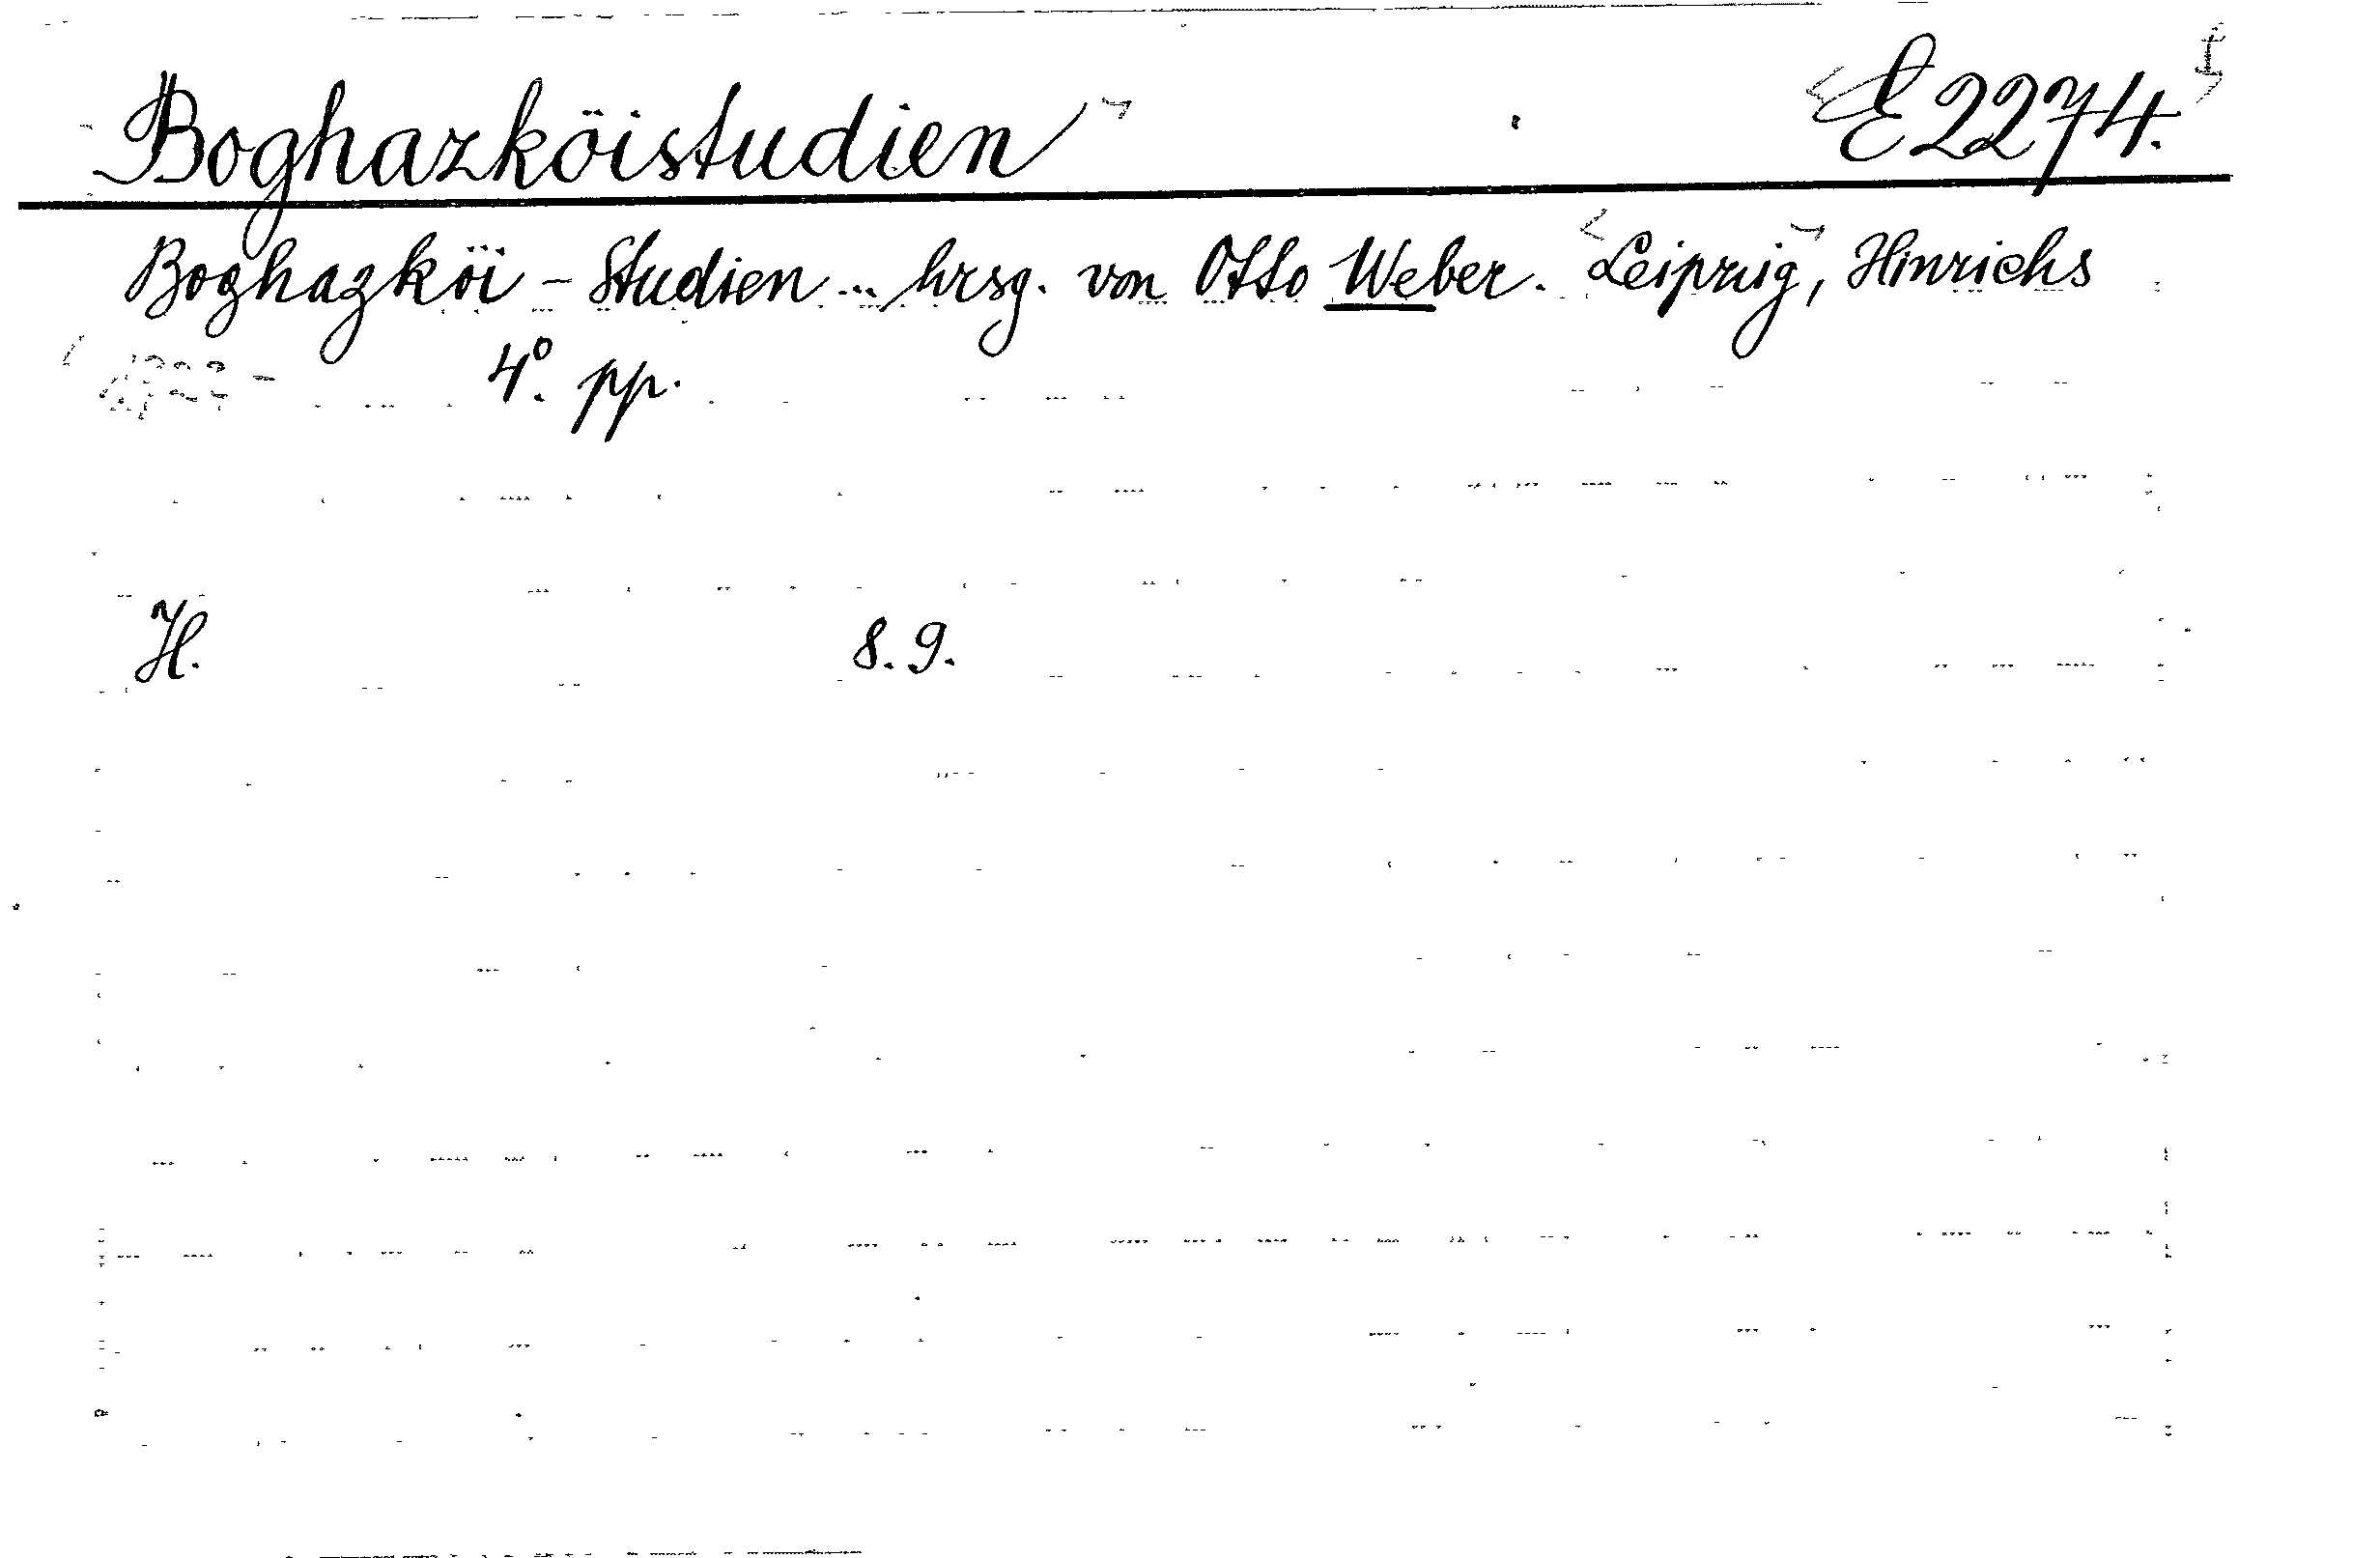 Boghazköistudien E 2274.
Boghazköi - Studien ... hrsg. von Otto Weber. Leipzig, Hinrichs
4°. pp.
H. 8. 9.